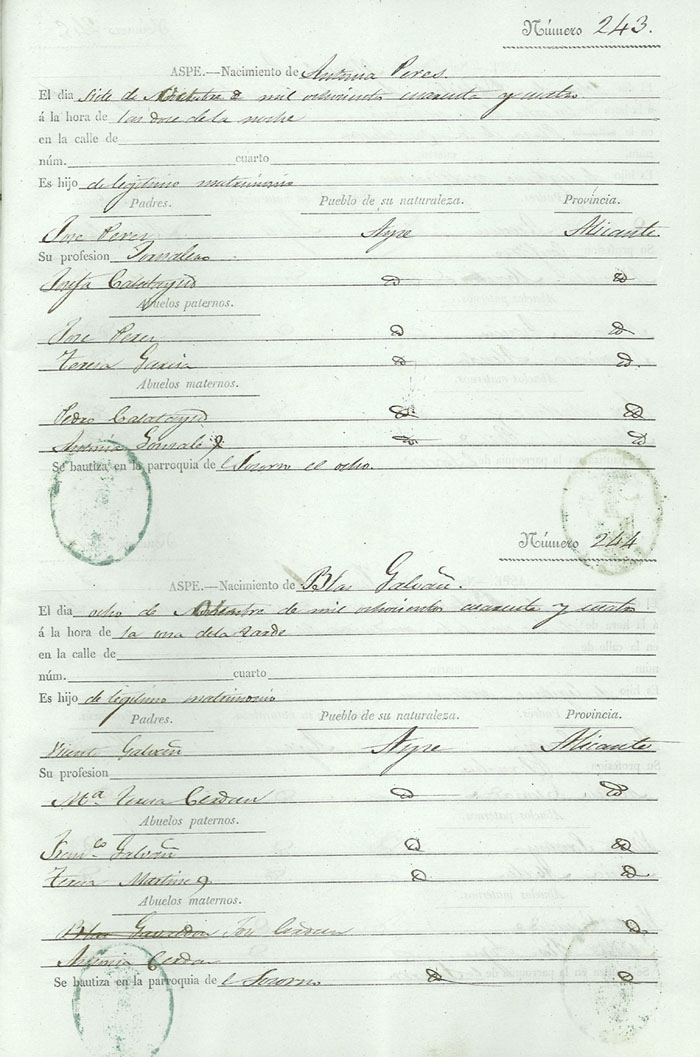 Número 243.
ASPE.—Nacimiento de Antonia Peres.
El dia siete de Octubre de mil ochocientos cuarenta y cuatro
á la hora de las dose de la noche
en la calle de
núm. cuarto
Es hijo de legitimo matrimonio
Padres. Pueblo de su naturaleza. Provincia.
Jose Peres Aspe Alicante
Su profesion Jornalero
Josefa Calatayud D D
Abuelos paternos.
Jose Peres D D
Teresa Garcia D D.
Abuelos maternos.
Pedro Calatayud D D
Antonia Gonzalez D D
Se bautiza en la parroquia de el Socorro el ocho.
Número 244
ASPE.—Nacimiento de Blas Galvañ.
El dia ocho de Octubre de mil ochocientos cuarenta y cuatro
á la hora de la una dela tarde
en la calle de
núm. cuarto
Es hijo de legitimo matrimonio
Padres. Pueblo de su naturaleza. Provincia.
Vicente Galvañ Aspe Alicante
Su profesion
Mª Teresa Cerdan D D
Abuelos paternos.
Franco Galvañ D D
Teresa Martinez D D
Abuelos maternos.
Blas Jose Cerdan D
Antonia Cerdan
Se bautiza en la parroquia de el Socorro D D